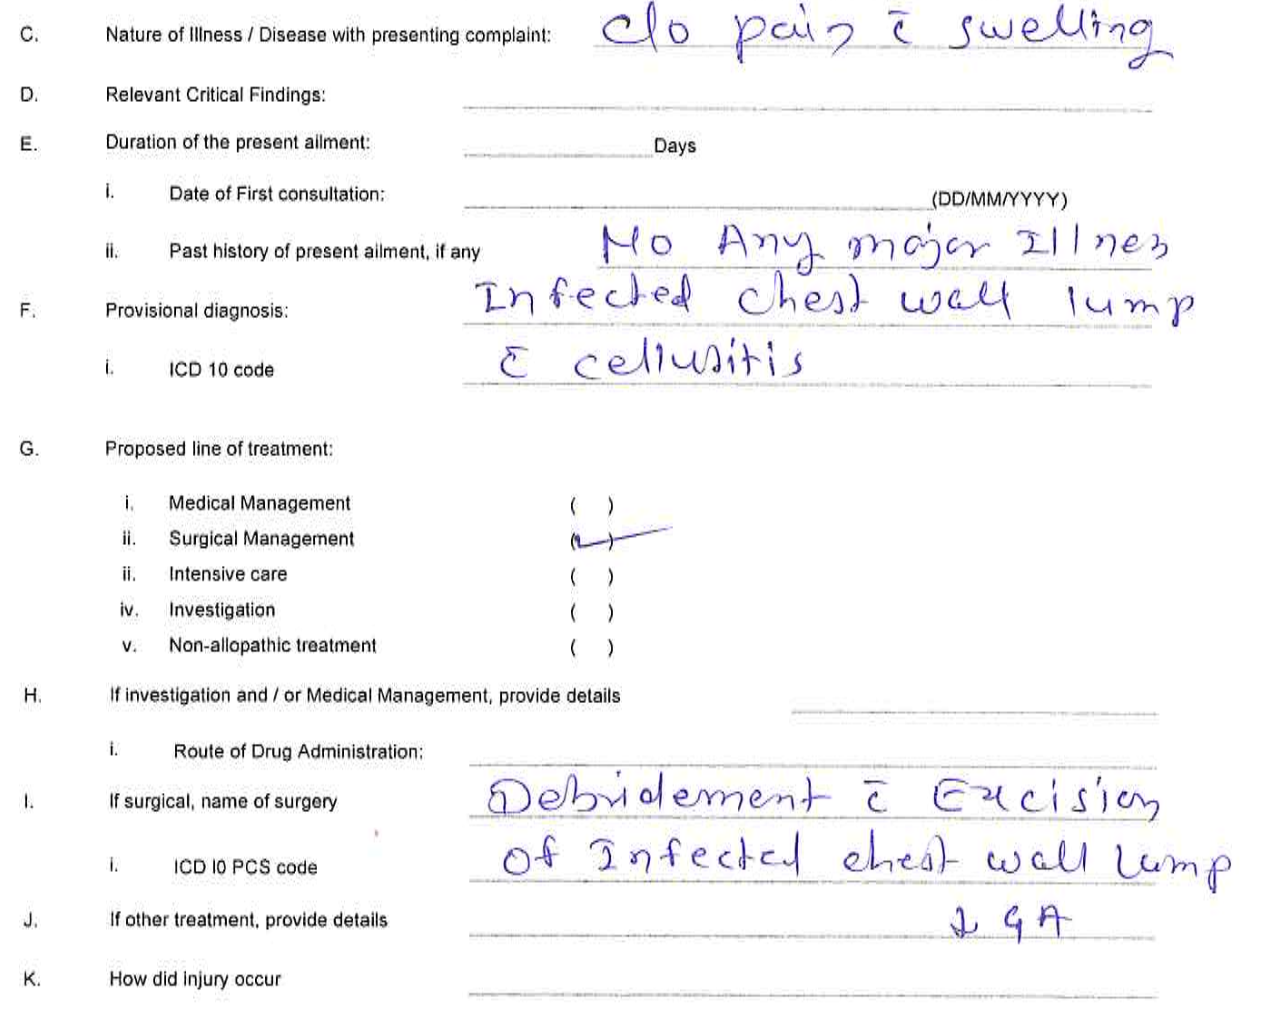 C. Nature of Illness / Disease with presenting complaint: C/o pain c̄ swelling
D. Relevant Critical Findings:
E. Duration of the present ailment: Days
i. Date of First consultation: (DD/MM/YYYY)
ii. Past history of present ailment, if any No Any major Illnes
F. Provisional diagnosis: Infected chest wall lump
i. ICD 10 code c̄ cellusitis
G. Proposed line of treatment:
i. Medical Management ( )
ii. Surgical Management (✓)
ii. Intensive care ( )
iv. Investigation ( )
v. Non-allopathic treatment ( )
H. If investigation and / or Medical Management, provide details
i. Route of Drug Administration:
I. If surgical, name of surgery Debridement c̄ Excision
i. ICD I0 PCS code Of Infected chest wall lump
J. If other treatment, provide details GA
K. How did injury occur